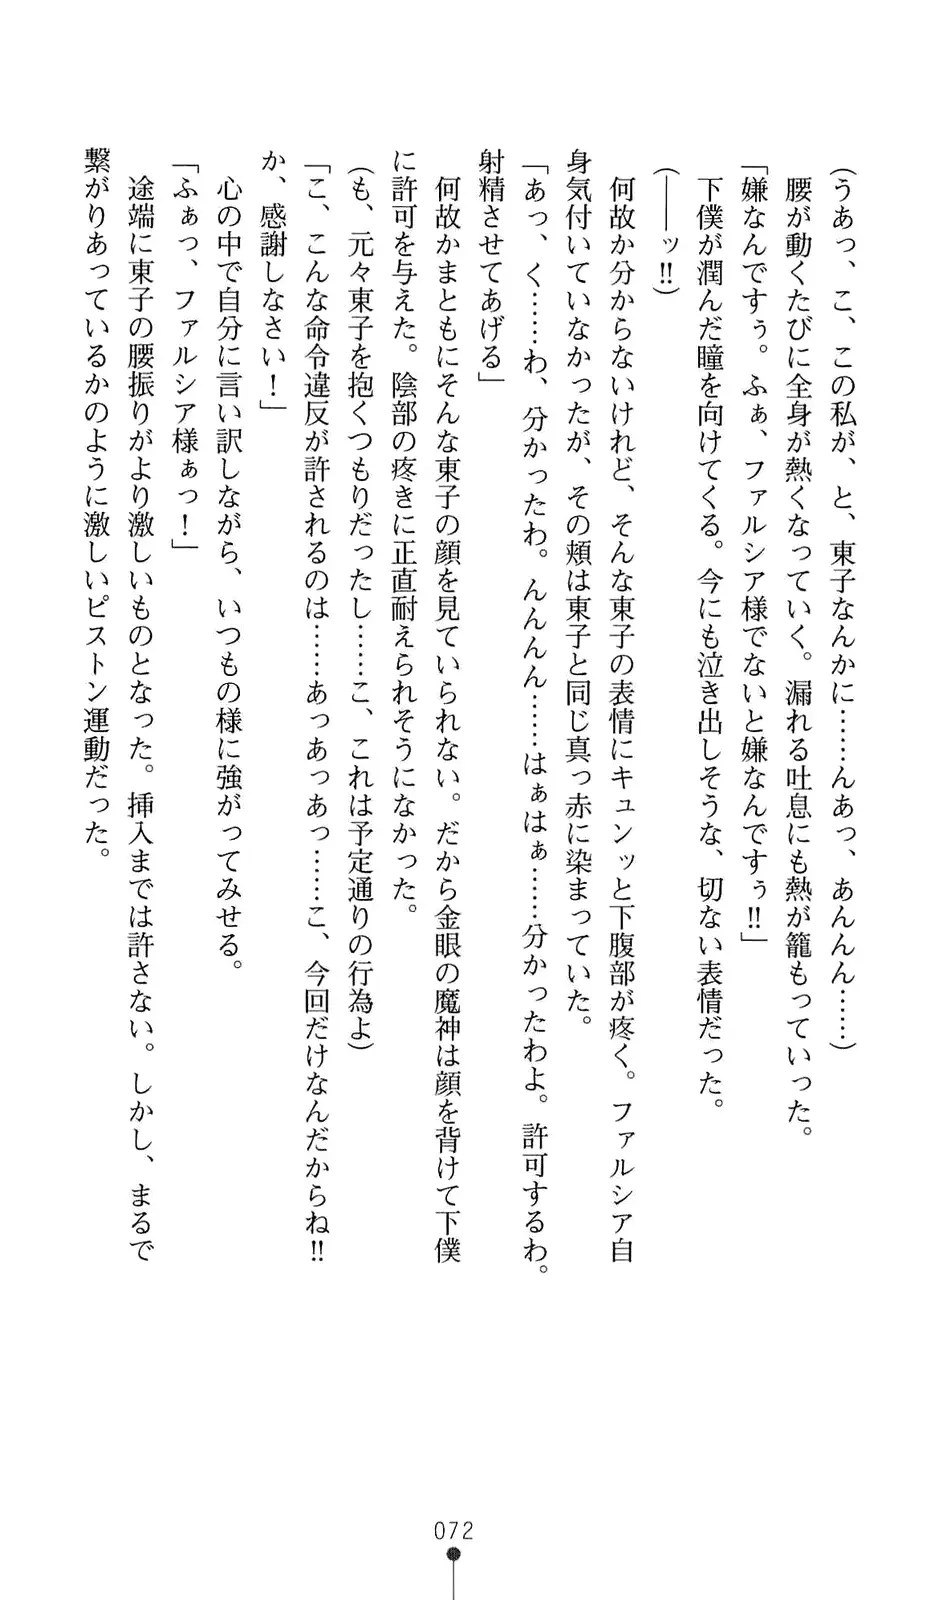 （うあっ、こ、この私が、と、東子なんかに……んあっ、あんんん……）
　腰が動くたびに全身が熱くなっていく。漏れる吐息にも熱が籠もっていった。
「嫌なんですぅ。ふぁ、ファルシア様でないと嫌なんですぅ‼」
　下僕が潤んだ瞳を向けてくる。今にも泣き出しそうな、切ない表情だった。
（――ッ‼）
　何故か分からないけれど、そんな東子の表情にキュンッと下腹部が疼く。ファルシア自
身気付いていなかったが、その頬は東子と同じ真っ赤に染まっていた。
「あっ、く……わ、分かったわ。んんんん……はぁはぁ……分かったわよ。許可するわ。
射精させてあげる」
　何故かまともにそんな東子の顔を見ていられない。だから金眼の魔神は顔を背けて下僕
に許可を与えた。陰部の疼きに正直耐えられそうになかった。
（も、元々東子を抱くつもりだったし……こ、これは予定通りの行為よ）
「こ、こんな命令違反が許されるのは……あっあっあっ……こ、今回だけなんだからね‼
か、感謝しなさい！」
　心の中で自分に言い訳しながら、いつもの様に強がってみせる。
「ふぁっ、ファルシア様ぁっ！」
　途端に東子の腰振りがより激しいものとなった。挿入までは許さない。しかし、まるで
繋がりあっているかのように激しいピストン運動だった。
072